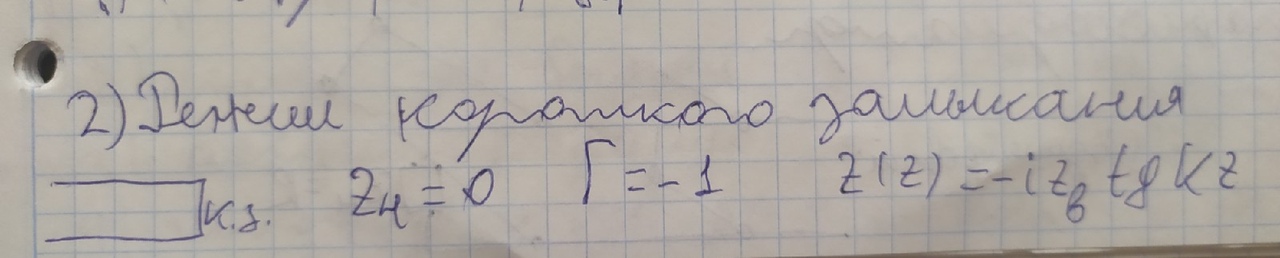 2) Режим короткого замыкания
к.з. Zн = 0 Γ = -1 Z(z) = -i Zв tg Kz